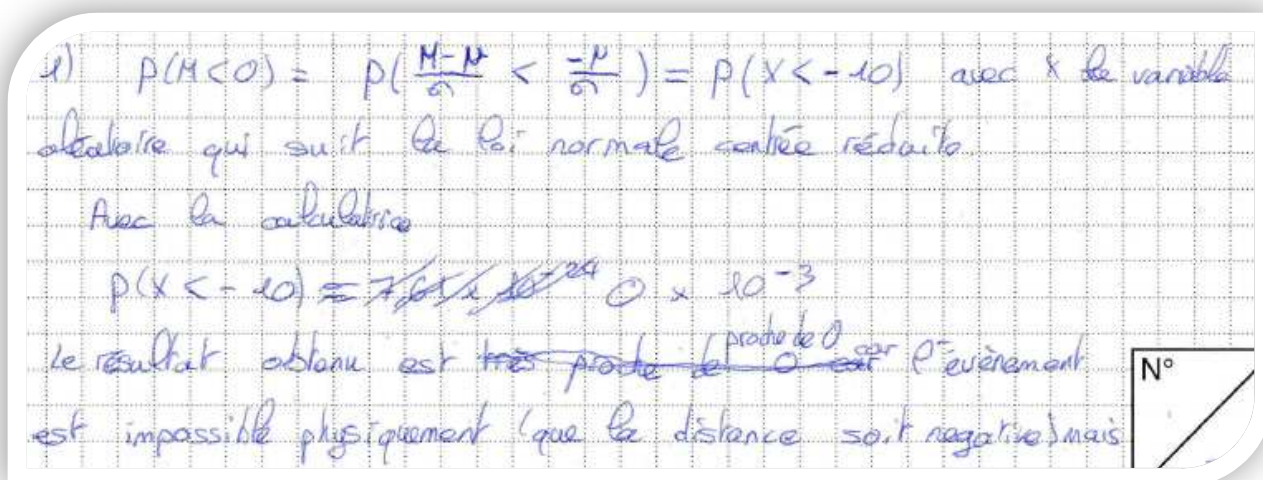 1) P(M<0) = P(\frac{M-μ}{σ} < \frac{-μ}{σ}) = P(X<-10) avec X la variable
aléatoire qui suit la loi normale centrée réduite.
Avec la calculatrice
P(X<-10) = 0 × 10^{-3}
Le résultat obtenu est proche de 0 car l'évènement
est impossible physiquement (que la distance soit negative) mais
N°